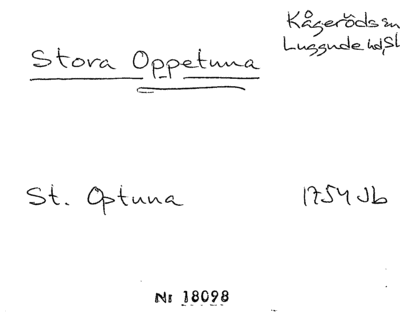 Kågeröds sn
Luggude hd, Sk
Stora Oppetuna
St. Optuna 1754 Jb
Nr 18098